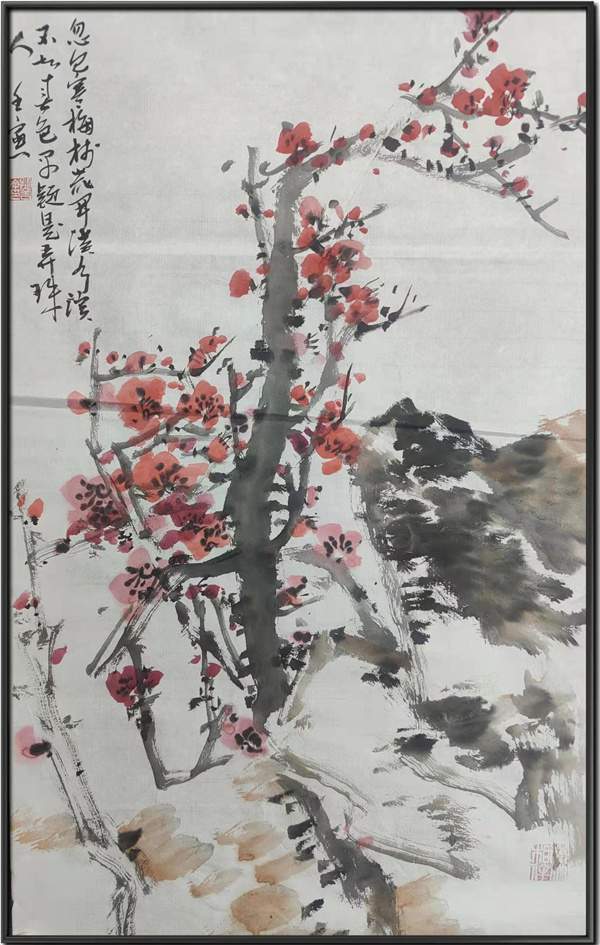 忽见寒梅树花开漢水滨
不知春色早疑是弄珠
人 壬寅